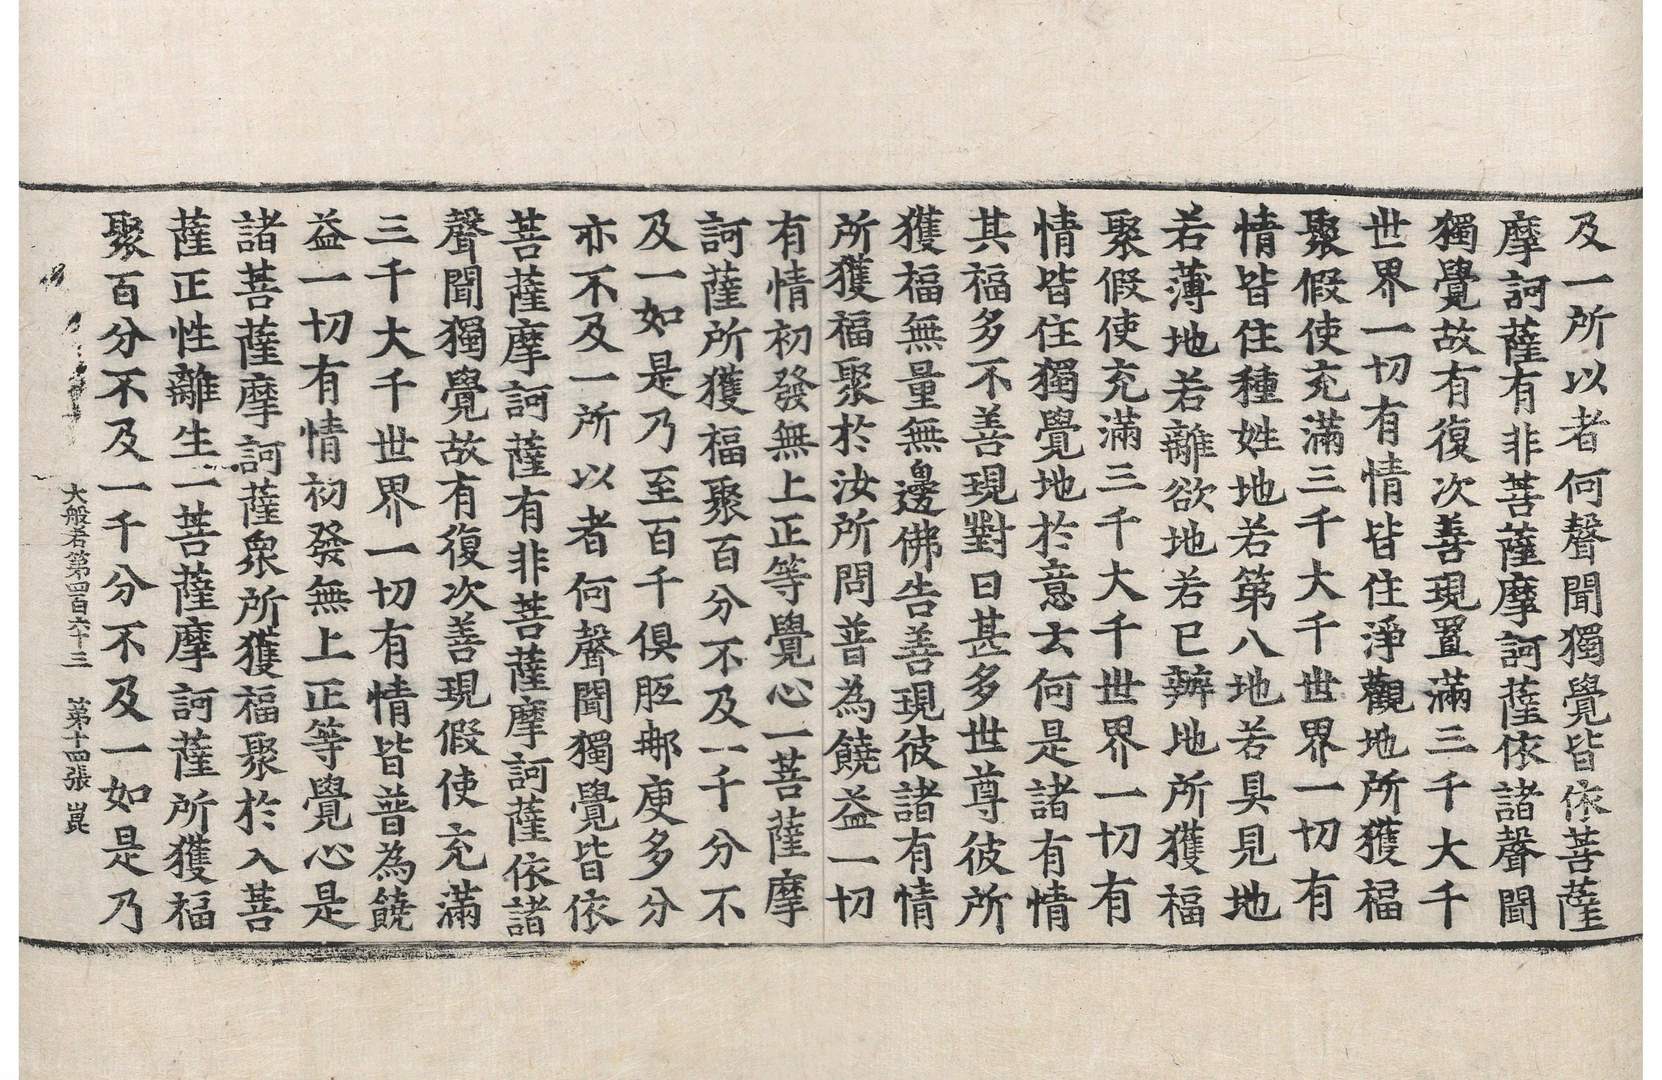 及一所以者何聲聞獨覺皆依菩薩
摩訶薩有非菩薩摩訶薩依諸聲聞
獨覺故有復次善現置滿三千大千
世界一切有情皆住淨觀地所獲福
聚假使充滿三千大千世界一切有
情皆住種姓地若第八地若具見地
若薄地若離欲地若已辦地所獲福
聚假使充滿三千大千世界一切有
情皆住獨覺地於意云何是諸有情
其福多不善現對曰甚多世尊彼所
獲福無量無邊佛告善現彼諸有情
所獲福聚於汝所問普為饒益一切
有情初發無上正等覺心一菩薩摩
訶薩所獲福聚百分不及一千分不
及一如是乃至百千俱胝那庾多分
亦不及一所以者何聲聞獨覺皆依
菩薩摩訶薩有非菩薩摩訶薩依諸
聲聞獨覺故有復次善現假使充滿
三千大千世界一切有情皆普為饒
益一切有情初發無上正等覺心是
諸菩薩摩訶薩衆所獲福聚於入菩
薩正性離生一菩薩摩訶薩所獲福
聚百分不及一千分不及一如是乃
大般若第四百六十三 第十四張 崑